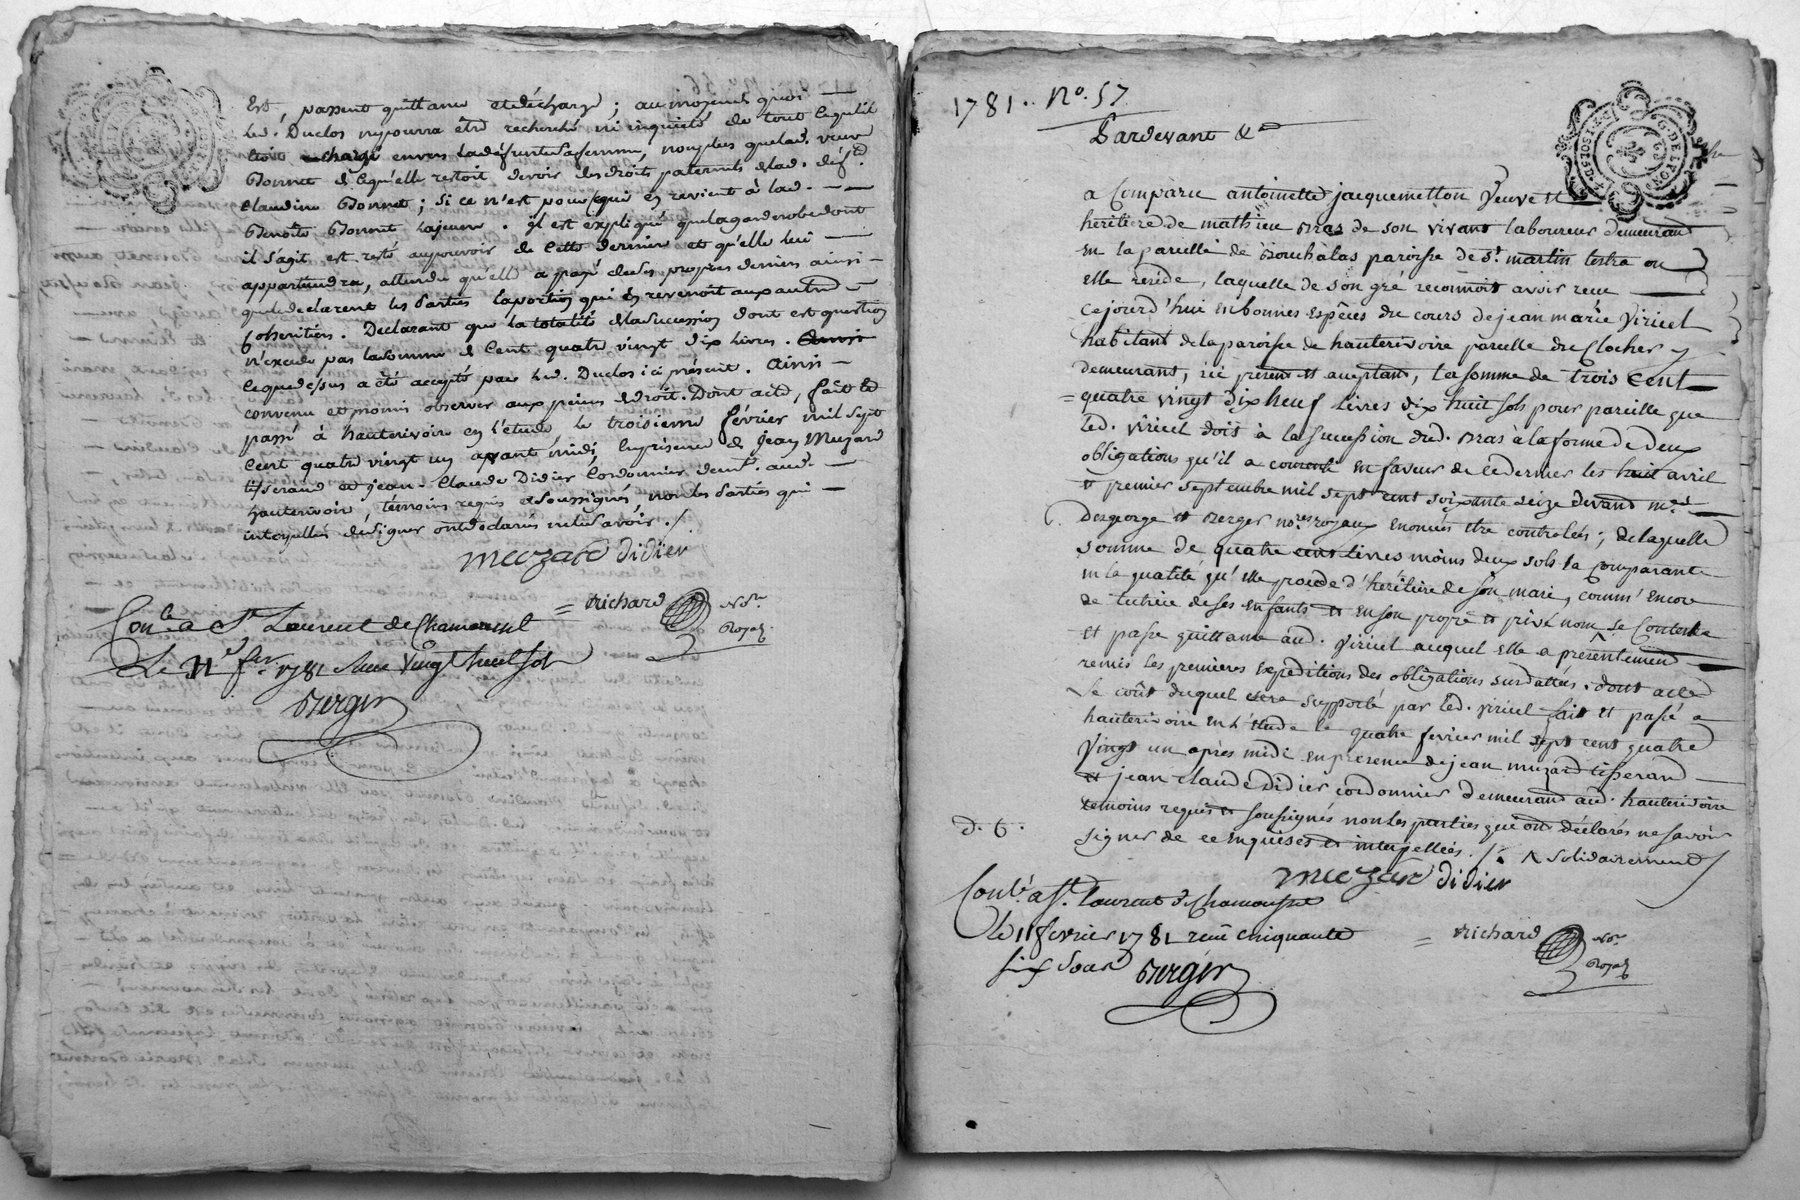 Est, passent quittance et décharge ; au moyend quoi
led. Duclos ne pourra être recherché ni inquieté de tout ce qu'il
étoit chargé envers la défunte sa femme, non plus que lad. veuve
Bonnet de ce qu'elle restoit devoir des droits paternels de lad. défte
Claudine Bonnet ; si ce n'est pour ce qui en revient à lad.
Benoite Bonnet la jeune. il est expliqué que la garderobe dont
il s'agit est resté au pouvoir de cette derniere et qu'elle lui
appartiendra, attendu qu'elle a payé de ses propres deniers ainsi
que le declarent les parties la portion qui en revenoit aux autres
cohéritiers. Déclarant que la totalité de la sucession dont est question
n'excede pas la somme de Cent quatre vingt dix livres.
Ce que dessus a été accepté par led. Duclos ici présent. Ainsi
convenu et promis observer aux peines de droit. Dont acte, fait et
passé à hauterivoire en l'étude le troisieme février mil sept
Cent quatre vingt un avant midi, en présence de Jean Muzard
tisserand et jean-Claude Didier Cordonnier demt. aud.
hauterivoire, témoins requis et soussignés non les parties qui
interpellées de signer ont déclarés ne le savoir ./
muzard didier
= Richard Nore
Royal
Conlé a St Laurent de Chamousset
Le 11e fer. 1781 Reçu Vingt huit sols
Berger
1781.. No. 57.
Pardevant &a
a Comparu antoinette jacquemetton Veuve et
heritiere de mathieu Bras de son vivant laboureur demeurant
en la parcelle de Bouchalas paroisse de St. martin lestra ou
elle reside, laquelle de son gré reconnoit avoir recu
cejourd'hui en bonnes espêces du cours de jean marie Viricel
habitant de la paroisse de hauterivoire parcelle du Clocher y
demeurant, ici present et aceptant, la somme de trois Cent
= quatre vingt dix neuf Livres dix huit sols pour pareille que
led. Viricel doit à la sucession dud. Bras à la forme de deux
obligations qu'il a consenti en faveur de ce dernier les huit avril
et premier septembre mil sept cent soixante seize devand mes
Desgeorge et Berger nores royaux enoncés etre controlées ; de laquelle
somme de quatre cent Livres moins deux sols la Comparante
en la qualité qu'elle procede d'heritiere de son mari, comm'encore
de tutrice de ses enfants et en son propre et privé nom se Contente
et passe quittance aud. Viricel auquel elle a ^ présentement
remis les premieres expeditions des obligations susdattées. dont acte
Le coût duquel sera supporté par led. Viricel fait et passé a
hauterivoire en l'etude le quatre fevrier mil sept cent quatre
Vingt un après midi en presence de jean muzard tisserand
et jean claude Didier cordonnier demeurand aud. hauterivoire
temoins requis et soussignés non Les parties qui ont déclarés ne savoir
signer de ce enquises et interpellées. /. ^ solidairement /
D. 6.
muzard didier
Conlé a St. Laurent de Chamousset
le 11 fevrier 1781 recu cinquante
six sous Berger
= Richard Nore
Royal